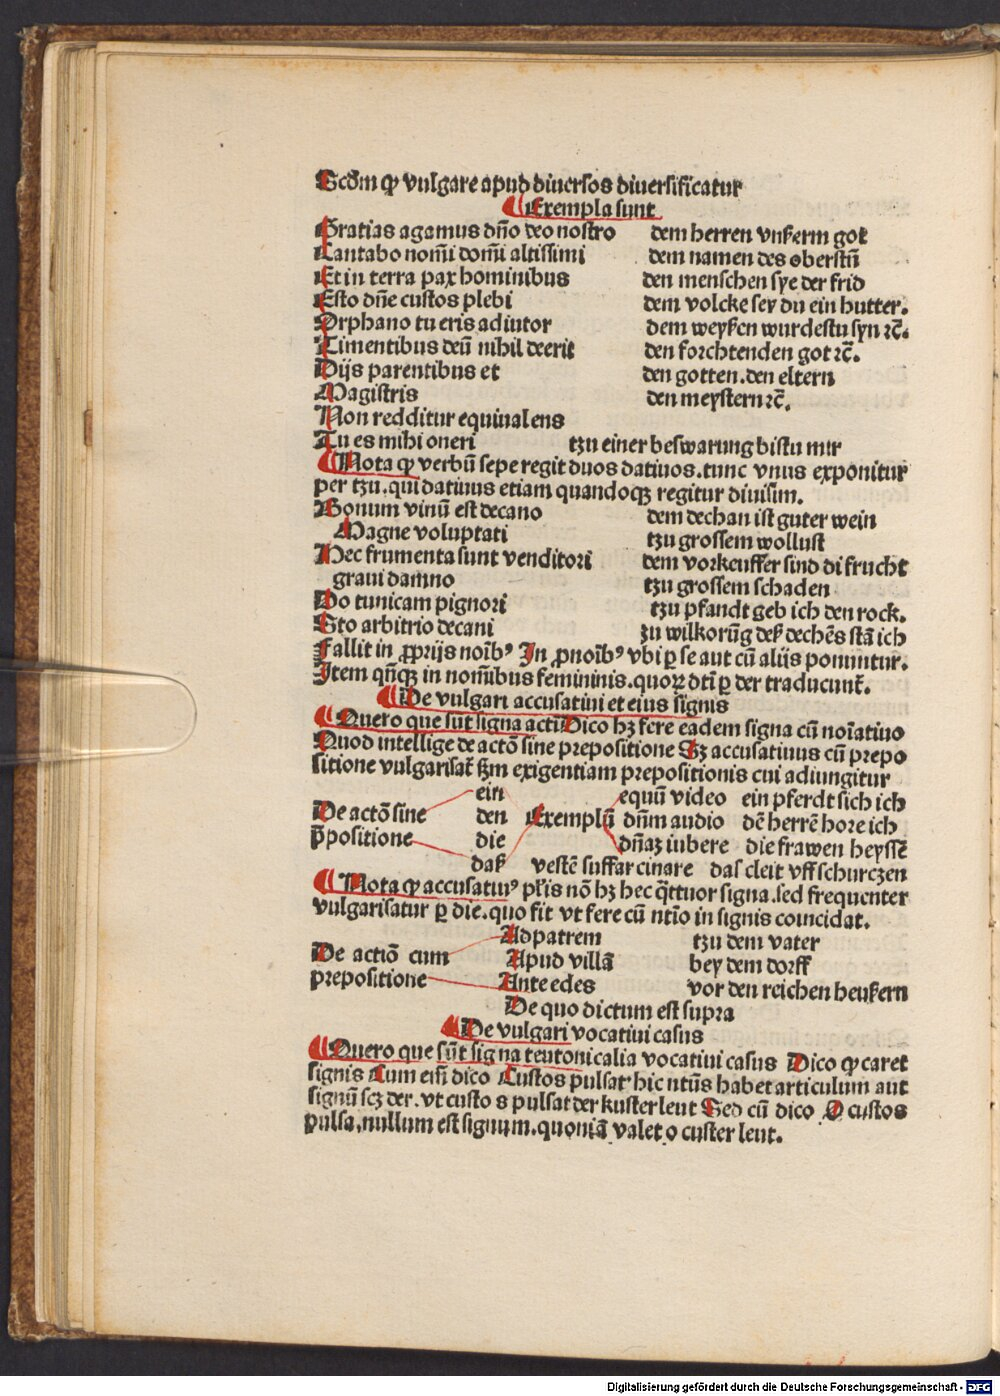 Scd̄m ꝙ vulgare apud diuersos diuersificatur
¶ Exempla sunt
Gratias agamus dn̄o deo nostro dem herren vnßerm got
Cantabo nom̄i dom̄i altissimi dem namen des oberstū
Et in terra pax hominibus den menschen sye der frid
Esto dn̄e custos plebi dem volcke sey du ein hutter.
Orphano tu eris adiutor dem weyßen wurdestu syn ꝛc̄.
Timentibus deū nihil deerit den forchtenden got ꝛc̄.
Dijs parentibus et den gotten. den eltern
Magistris den meystern ꝛc̄.
Non redditur equiualens
Tu es mihi oneri tzu einer beswarung bistu mir
¶ Nota ꝙ verbū sepe regit duos datiuos. tunc vnus exponitur
per tzu. qui datiuus etiam quandoqꝫ regitur diuisim.
Bonum vinū est decano dem dechan ist guter wein
Magne voluptati tzu grossem wollust
Hec frumenta sunt venditori dem vorkeuffer sind di frucht
graui damno tzu grossem schaden
Do tunicam pignori tzu pfandt geb ich den rock.
Sto arbitrio decani zu wilkorūg deß dechēs stā ich
Fallit in ꝓprijs noīb⁹ In ꝓnoīb⁹ vbi ꝑ se aut cū alijs ponuntur.
Item qn̄qꝫ in nom̄ibus femininis. quoꝝ dt̄i ꝑ der traducunt̄.
¶ De vulgari accusatiui et eius signis
¶ Quero que sūt signa actī Dico hꝫ fere eadem signa cū noīatiuo
Quod intellige de actō sine prepositione Sꝫ accusatiuus cū prepo
sitione vulgarisat̄ ẜm exigentiam prepositionis cui adiungitur
ein equū video ein pferdt sich ich
De actō sine den Exemplū dn̄m audio dē herrē hore ich
p̄positione die dn̄aꝫ iubere die frawen heyssē
daß vestē suffarcinare das cleit vff schurczen
¶ Nota ꝙ accusatiu⁹ pl̄is nō hꝫ hec q̄ttuor signa. sed frequenter
vulgarisatur ꝑ die. quo fit vt fere cū nt̄io in signis coincidat.
Ad patrem tzu dem vater
De actiō cum Apud villā bey dem dorff
prepositione Ante edes vor den reichen heußern
De quo dictum est supra
¶ De vulgari vocatiui casus
¶ Quero que sūt signa teutonicalia vocatiui casus Dico ꝙ caret
signis Cum eim̄ dico Custos pulsat hic nt̄us habet articulum aut
signū scꝫ der. vt custos pulsat der kuster leut Sed cū dico O custos
pulsa, nullum est signum. quoniā valet o custer leut.
Digitalisierung gefördert durch die Deutsche Forschungsgemeinschaft - DFG